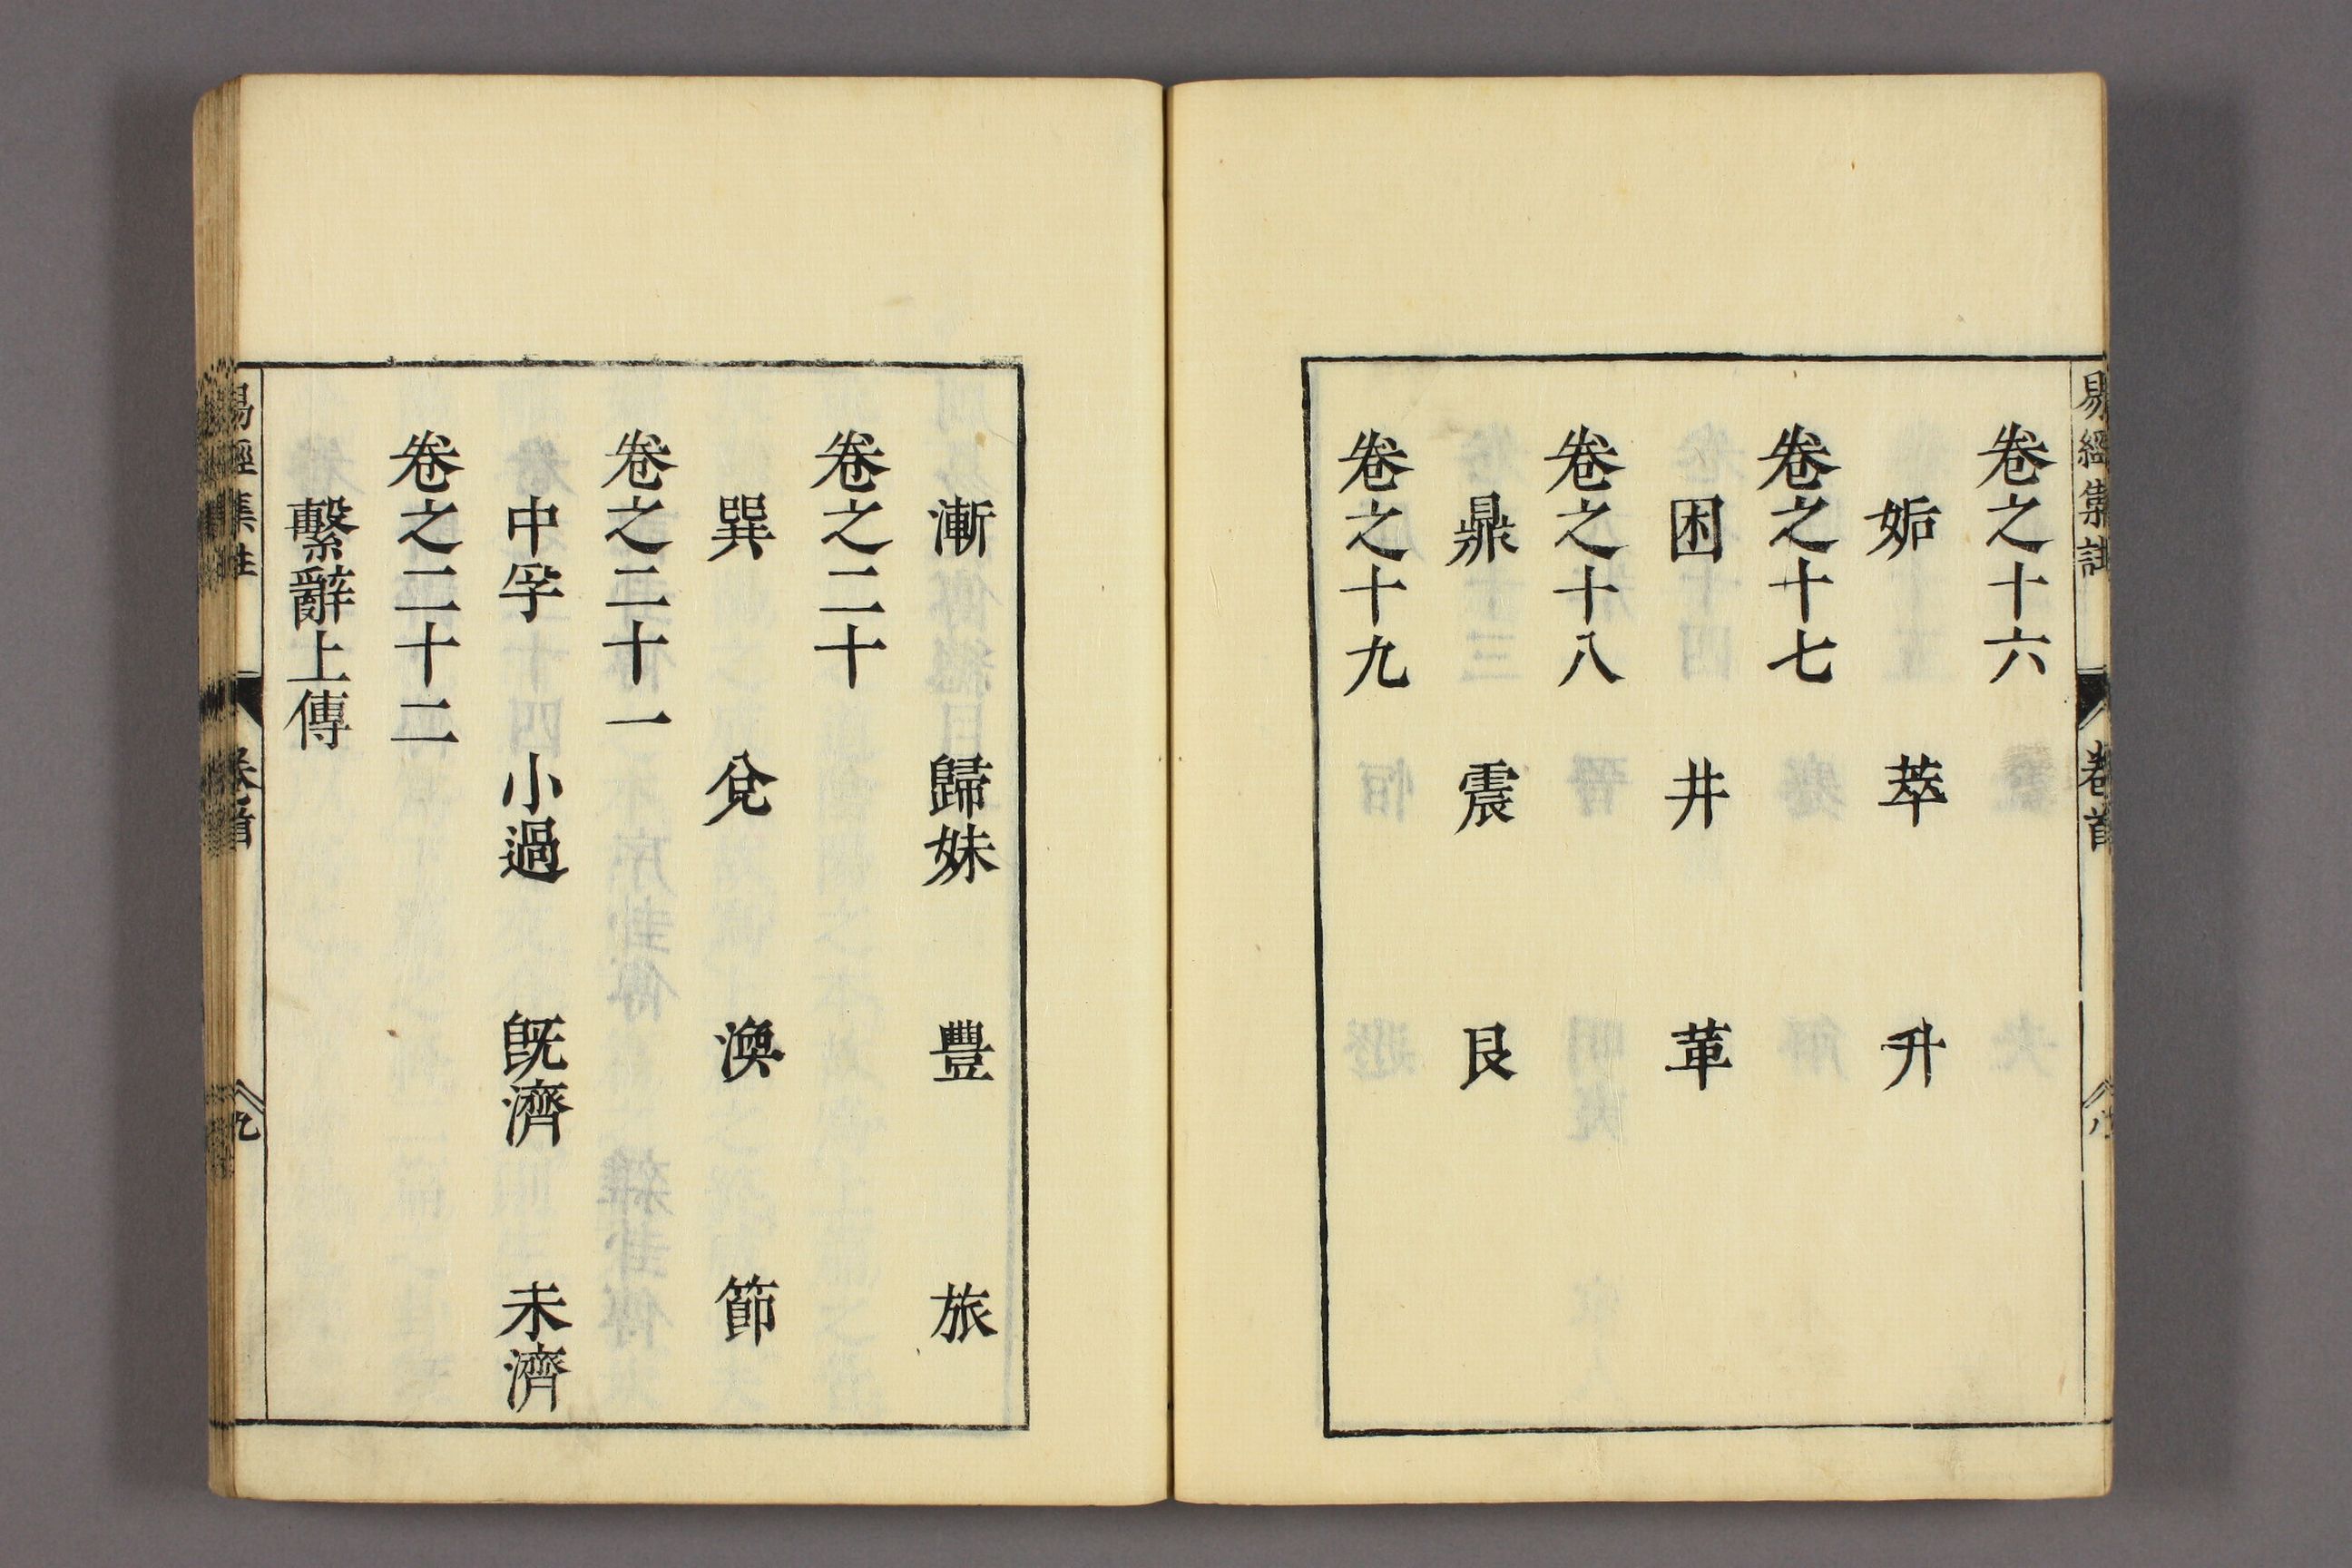 易經集註 卷首 八
卷之十六
姤 萃 升
卷之十七
困 井 革
卷之十八
鼎 震 艮
卷之十九
漸 歸妹 豐 旅
卷之二十
巽 兌 渙 節
卷之二十一
中孚 小過 旣濟 未濟
卷之二十二
繫辭上傳
易經集註 卷首 九